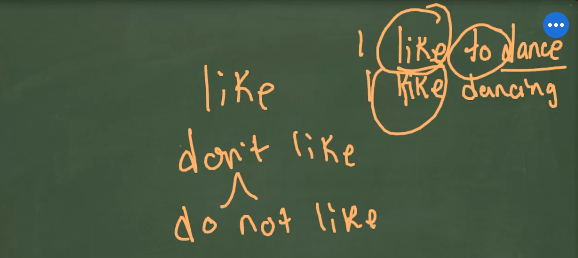 I like to dance
I like dancing
like
don't like
do not like